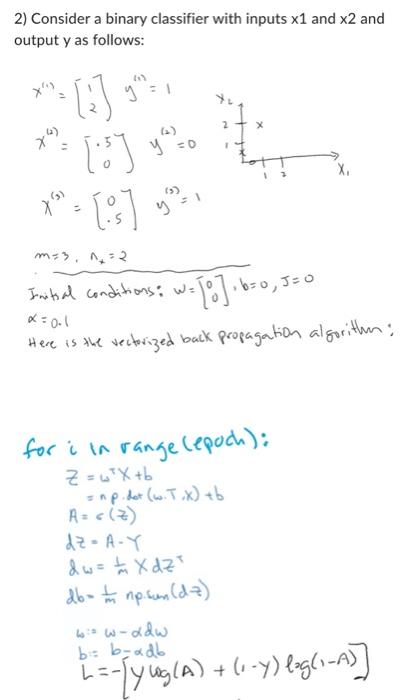 2) Consider a binary classifier with inputs x1 and x2 and
output y as follows:
x⁽¹⁾ = [1 2] y⁽¹⁾ = 1
x⁽²⁾ = [.5 0] y⁽²⁾ = 0
x⁽³⁾ = [0 .5] y⁽³⁾ = 1
x₂
2 x
1 x
1 2 x₁
m=3, nₓ=2
Initial conditions: w=[0 0], b=0, J=0
α=0.1
Here is the vectorized back propagation algorithm:
for i in range(epoch):
Z = wᵀX+b
= np.dot(w.T,x)+b
A = σ(Z)
dZ = A-Y
dw = 1/m X dZᵀ
db = 1/m np.sum(dZ)
w:= w-αdw
b:= b-αdb
L=-[y log(A) + (1-y) log(1-A)]